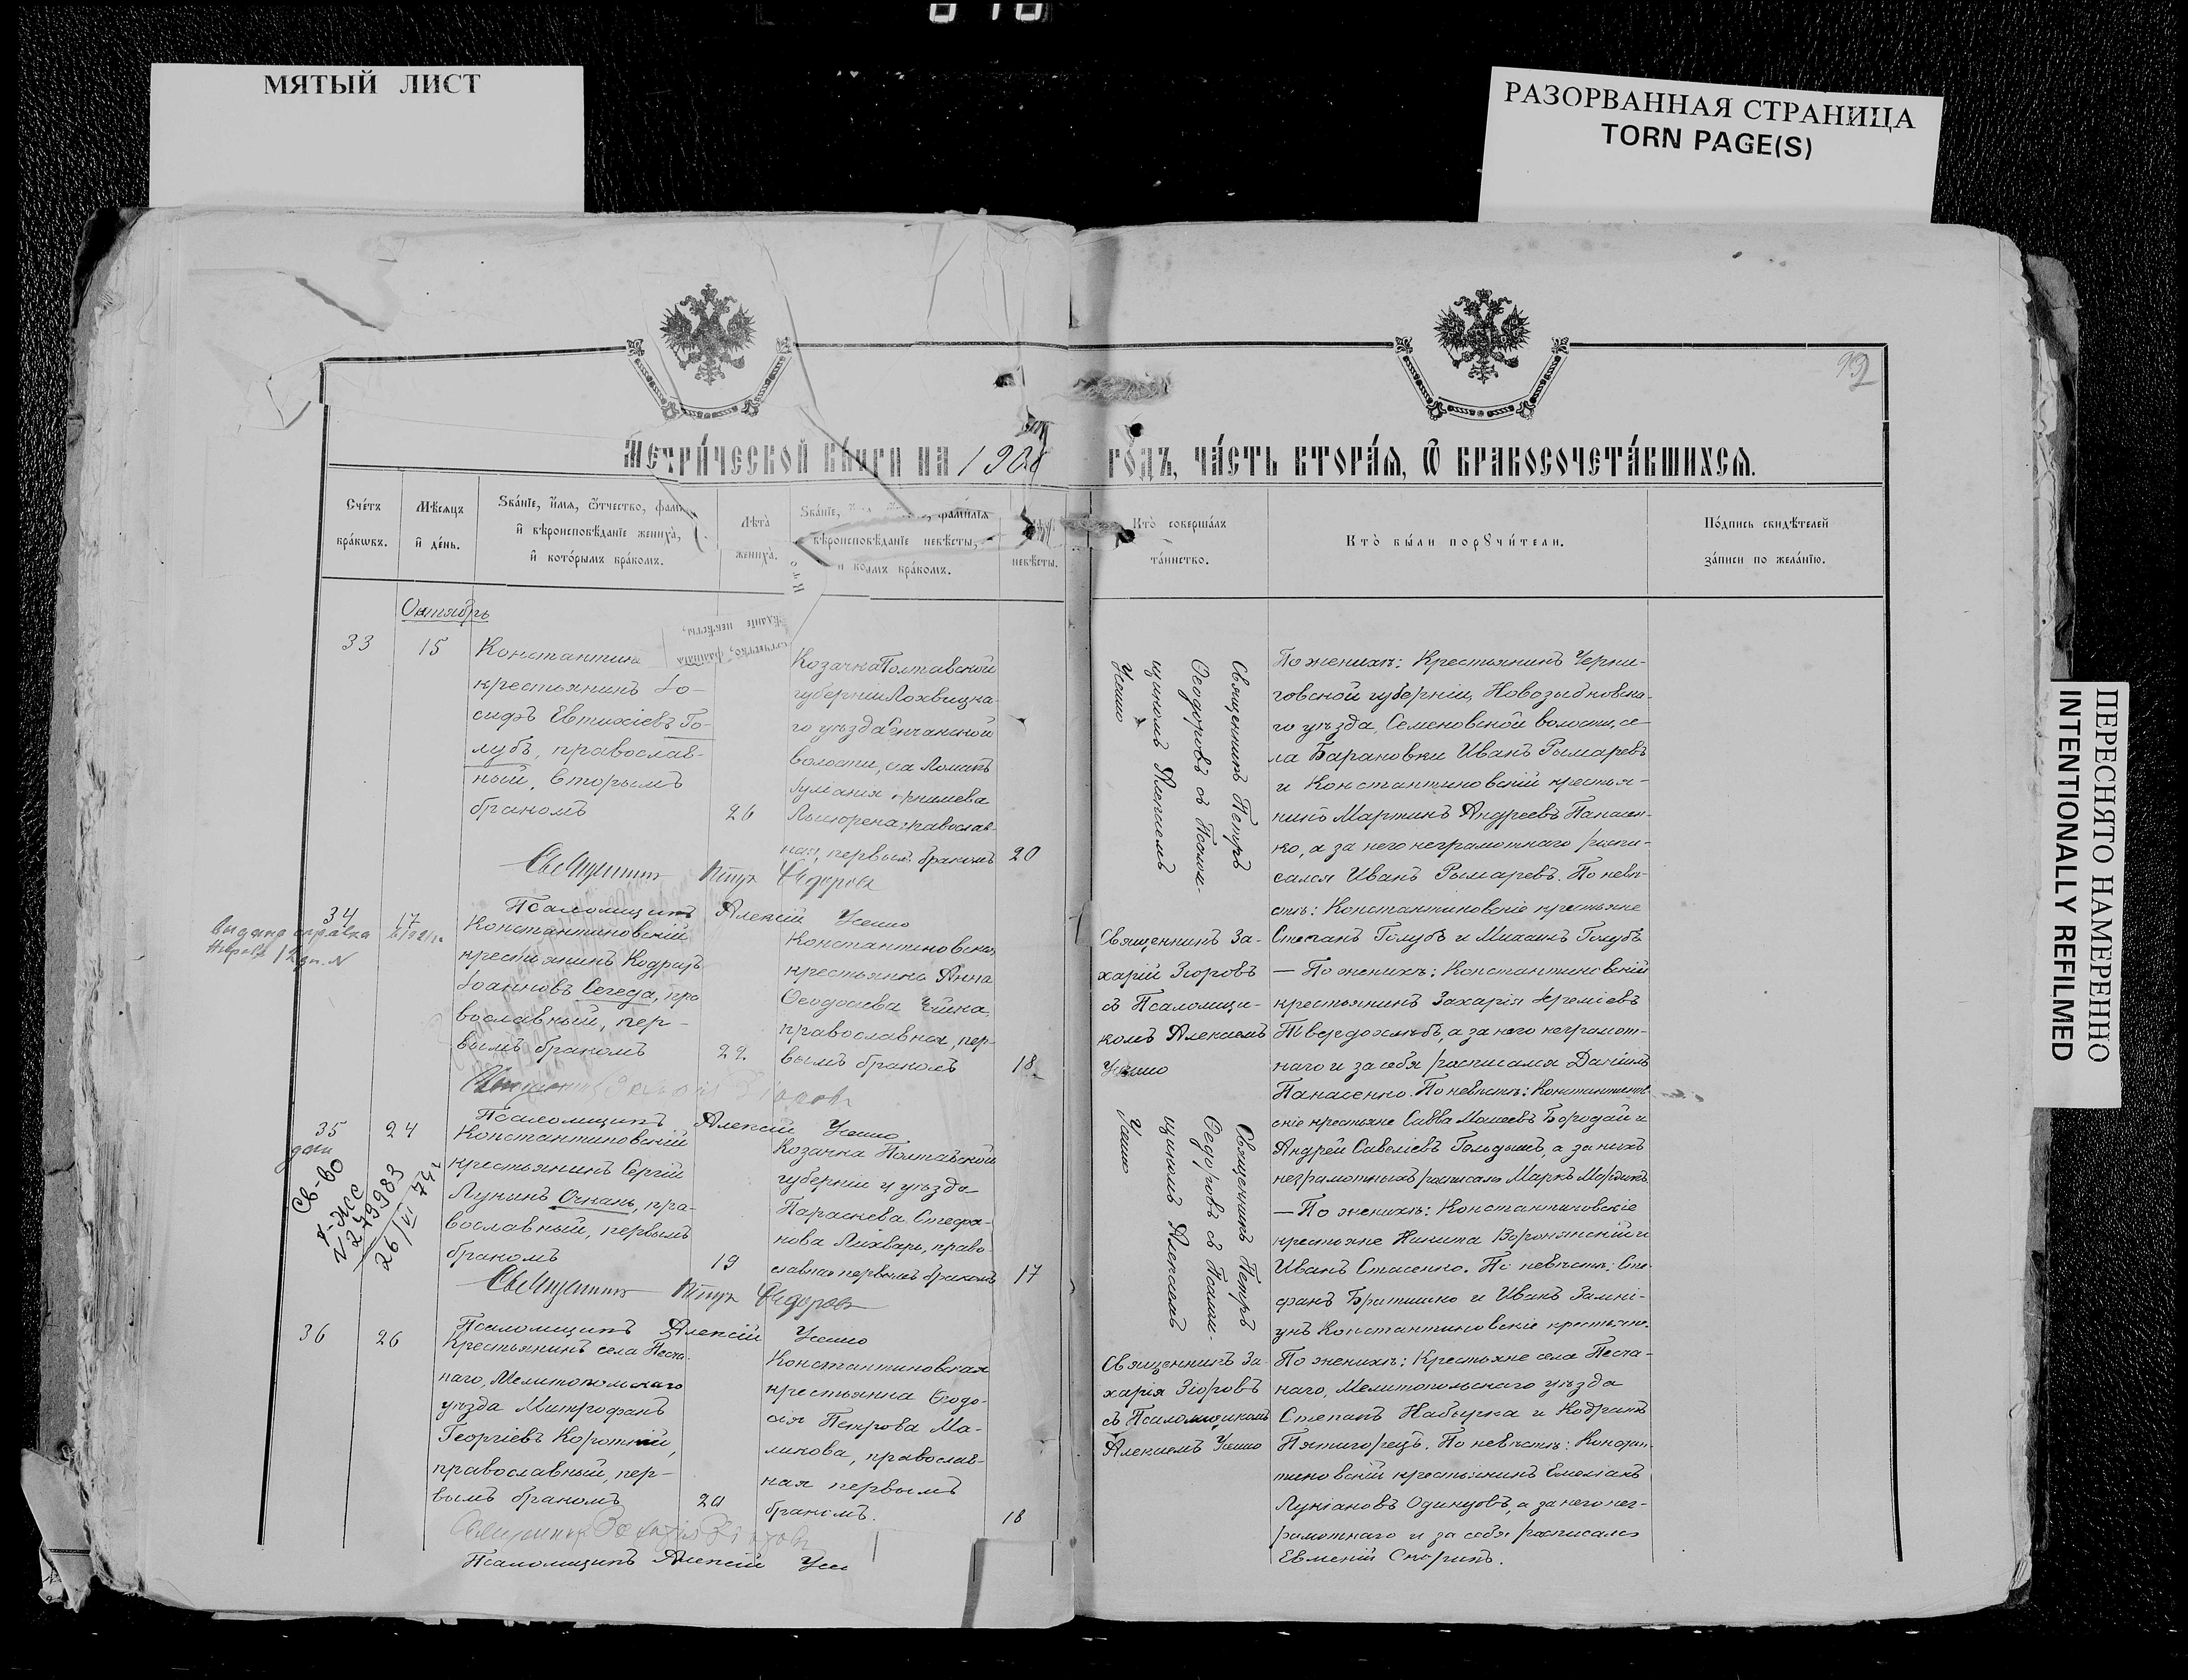 МЯТЫЙ ЛИСТ
РАЗОРВАННАЯ СТРАНИЦА
TORN PAGE(S)
ПЕРЕСНЯТО НАМЕРЕННО
INTENTIONALLY REFILMED
Метри́ческой кни́ги на 190
го́дъ, ча́сть втора́я, ѿ бракосочета́вшихся.
Сче́тъ
бра́ковъ.
Мѣ́сяцъ
и де́нь.
Зва́нїе, и́мя, ѻ́тчество,
и вѣроисповѣ́данїе жениха̀,
и кото́рымъ бра́комъ.
Лѣта̀
жениха̀.
Зва́нїе, фами́лїя
вѣроисповѣ́данїе невѣ́сты,
и коимъ бра́комъ.
невѣ́сты.
Кто̀ соверша́лъ
та́инство.
Кто̀ бы́ли порꙋчи́тели.
По́дпись свидѣ́телей
за́писи по жела́нїю.
Октябрь
33
15
крестьянинъ Іо-
сифъ Евтихіевъ Го-
лубъ, православ-
ный, вторымъ
бракомъ
26
Козачка Полтавской
губерніи Лохвицка-
го уѣзда
волости,
православ-
ная, первымъ бракомъ
20
Священникъ Петръ
Ѳеодоровъ съ Псалом-
щикомъ Алексіемъ
По женихѣ: Крестьянинъ Черни-
говской губерніи, Новозыбковска-
го уѣзда, Семеновской волости, се-
ла Барановки Иванъ Рымаревъ
и Константиновскій крестья-
нинъ Мартинъ Андреевъ Панасен-
ко, а за него неграмотнаго распи-
сался Иванъ Рымаревъ. По невѣ-
стѣ: Константиновскіе крестьяне
Степанъ Голубъ и Михаилъ Голубъ
Псаломщикъ Алексій
34
17
Выдана справка
Константиновскій
крестьянинъ Кодратъ
Іоанновъ Сегеда, пра
вославный, пер-
вымъ бракомъ
22
Константиновская
крестьянка Анна
Ѳеодосіева
православная, пер-
вымъ бракомъ
18
Священникъ За-
харій Зіоровъ
съ Псаломщи-
комъ Алексіемъ
— По женихѣ: Константиновскій
крестьянинъ Захарія Іереміевъ
Твердохлѣбъ, а за него неграмот-
наго и за себя расписался Даніилъ
Панасенко. По невѣстѣ: Константинов-
скіе крестьяне Савва Моисеевъ Бородай и
Андрей Савеліевъ Гольдышъ, а за нихъ
неграмотныхъ расписался Маркъ
Псаломщикъ Алексій
35
24
Св-во
26/VI
Константиновскій
крестьянинъ Сергій
Лукинъ Очкань, пра-
вославный, первымъ
бракомъ
19
Козачка Полтавской
губерніи и уѣзда
Параскева Стефа-
нова Лихварь, право-
славная первымъ бракомъ
17
Священникъ Петръ
Ѳедоровъ съ Псалом-
щикомъ Алексіемъ
— По женихѣ: Константиновскіе
крестьяне Никита Воронянскій и
Иванъ Стасенко. По невѣстѣ: Сте-
фанъ Братишко и Иванъ
Константиновскіе крестьяне.
Псаломщикъ Алексій
36
26
Крестьянинъ села Песча-
наго, Мелитопольскаго
уѣзда Митрофанъ
Георгіевъ Короткій,
православный, пер-
вымъ бракомъ
20
Константиновская
крестьянка Ѳеодо-
сія Петрова Ма-
ликова, православ-
ная первымъ
бракомъ.
18
Священникъ За-
харія Зіоровъ
съ Псаломщикомъ
Алексіемъ
По женихѣ: Крестьяне села Песча-
наго, Мелитопольскаго уѣзда
Степанъ Набырка и Кодратъ
Пятигорецъ. По невѣстѣ: Констан-
тиновскій крестьянинъ Емеліанъ
Лукіановъ Одинцовъ, а за него нег-
рамотнаго и за себя расписался
Евменій Скорикъ.
Псаломщикъ Алексій